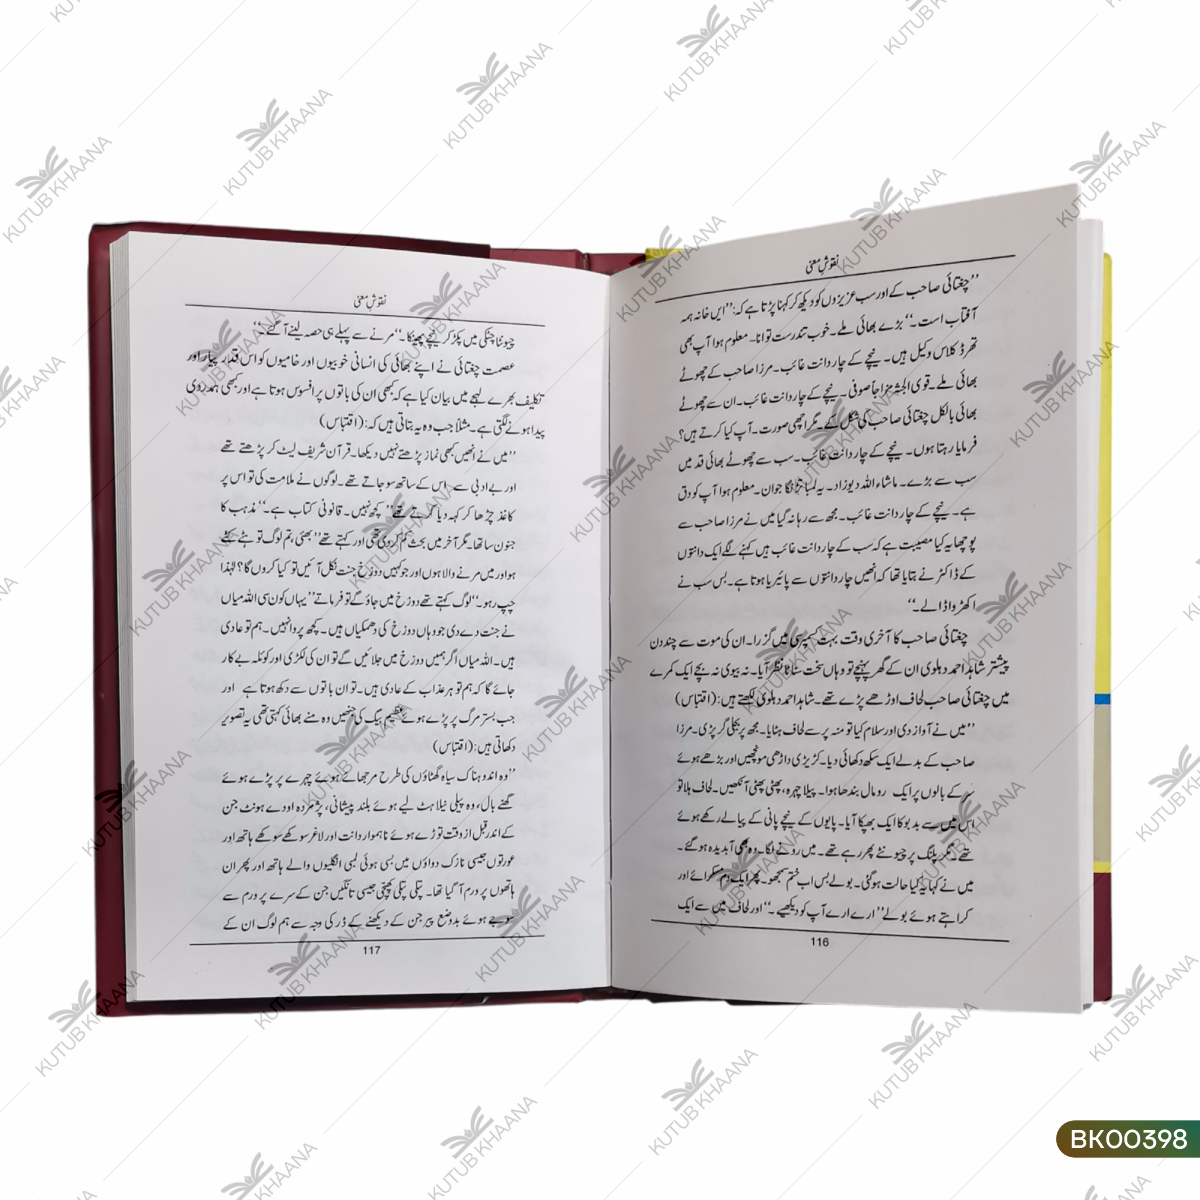 نقوشِ معنی
"چغتائی صاحب کے اور سب عزیزوں کو دیکھ کر کہنا پڑتا ہے کہ: "ایں خانہ ہمہ
آفتاب است۔" بڑے بھائی ملے۔ خوب تندرست توانا۔ معلوم ہوا آپ بھی
تھرڈ کلاس وکیل ہیں۔ نیچے کے چار دانت غائب۔ مرزا صاحب کے چھوٹے
بھائی ملے۔ قوی الجثہ مزاجاً صوفی۔ نیچے کے چار دانت غائب۔ ان سے چھوٹے
بھائی بالکل چغتائی صاحب کی شکل کے۔ مگر اچھی صورت۔ آپ کیا کرتے ہیں؟
فرمایا رہتا ہوں۔ نیچے کے چار دانت غائب۔ سب سے چھوٹے بھائی قد میں
سب سے بڑے۔ ماشاء اللہ دیوزاد۔ یہ لمبا تڑنگا جوان۔ معلوم ہوا آپ کو دق
ہے۔ نیچے کے چار دانت غائب۔ مجھ سے رہا نہ گیا میں نے مرزا صاحب سے
پوچھا یہ کیا مصیبت ہے کہ سب کے چار دانت غائب ہیں کہنے لگے ایک دانتوں
کے ڈاکٹر نے بتایا تھا کہ انھیں چار دانتوں سے پائیریا ہوتا ہے۔ بس سب نے
اکھڑوا ڈالے۔"
چغتائی صاحب کا آخری وقت بہت کسمپرسی میں گزرا۔ ان کی موت سے چند دن
پیشتر شاہد احمد دہلوی ان کے گھر پہنچے تو وہاں سخت سناٹا نظر آیا۔ نہ بیوی نہ بچے ایک کمرے
میں چغتائی صاحب لحاف اوڑھے پڑے تھے۔ شاہد احمد دہلوی لکھتے ہیں: (اقتباس)
"میں نے آواز دی اور سلام کیا تو منہ پر سے لحاف ہٹایا۔ مجھ پر بجلی گر پڑی۔ مرزا
صاحب کے بدلے ایک سکھ دکھائی دیا۔ کڑبڑی داڑھی مونچھیں اور بڑھے ہوئے
سر کے بالوں پر ایک رومال بندھا ہوا۔ پیلا چہرہ، پھٹی پھٹی آنکھیں۔ لحاف ہلا تو
اس میں سے بدبو کا ایک بھپکا آیا۔ پایوں کے نیچے پانی کے پیالے رکھے ہوئے
تھے مگر پلنگ پر چیونٹے پھر رہے تھے۔ میں رونے لگا۔ وہ بھی آبدیدہ ہو گئے۔
میں نے کہا یہ کیا حالت ہو گئی۔ بولے بس اب ختم سمجھو۔ پھر ایک دم مسکرائے اور
کراہتے ہوئے بولے "ارے ارے آپ کو دیکھیے۔" اور لحاف میں سے ایک
116
نقوشِ معنی
چیونٹا چٹکی میں پکڑ کر نیچے پھینکا۔ "مرنے سے پہلے ہی حصہ لینے آگئے۔"
عصمت چغتائی نے اپنے بھائی کی انسانی خوبیوں اور خامیوں کو اس قدر پیار اور
تکلیف بھرے لہجے میں بیان کیا ہے کہ کبھی ان کی باتوں پر افسوس ہوتا ہے اور کبھی ہمدردی
پیدا ہونے لگتی ہے۔ مثلاً جب وہ یہ بتاتی ہیں کہ: (اقتباس)
"میں نے انھیں کبھی نماز پڑھتے نہیں دیکھا۔ قرآن شریف لیٹ کر پڑھتے تھے
اور بے ادبی سے اس کے ساتھ سو جاتے تھے۔ لوگوں نے ملامت کی تو اس پر
کاغذ چڑھا کر کہہ دیا کرتے تھے "کچھ نہیں۔ قانونی کتاب ہے۔" مذہب کا
جنون سا تھا۔ مگر آخر میں بحث کم کر دی تھی اور کہتے تھے "بھئی تم لوگ تو ہٹے کٹے
ہو اور میں مرنے والا ہوں اور جو کہیں دوزخ جنت نکل آئیں تو کیا کروں گا؟ لہٰذا
چپ رہو۔" لوگ کہتے تھے دوزخ میں جاؤ گے تو فرماتے "یہاں کون سی اللہ میاں
نے جنت دے دی جو وہاں دوزخ کی دھمکیاں ہیں۔ کچھ پروا نہیں۔ ہم تو عادی
ہیں۔ اللہ میاں اگر ہمیں دوزخ میں جلائیں گے تو ان کی لکڑی اور کوئلہ بے کار
جائے گا کہ ہم تو ہر عذاب کے عادی ہیں۔ تو ان باتوں سے دکھ ہوتا ہے اور
جب بستر مرگ پر پڑے ہوئے عظیم بیگ کی جنھیں وہ منے بھائی کہتی تھی یہ تصویر
دکھاتی ہیں: (اقتباس)
"وہ اندوہناک سیاہ گھٹاؤں کی طرح مرجھائے ہوئے چہرے پر پڑے ہوئے
گھنے بال، وہ پیلی نیلاہٹ لیے ہوئے بلند پیشانی، پژمردہ اودے ہونٹ جن
کے اندر قبل از وقت توڑے ہوئے ناہموار دانت اور لاغر سوکھے سوکھے ہاتھ اور
عورتوں جیسی نازک دواؤں میں بسی ہوئی لمبی انگلیوں والے ہاتھ اور پھر ان
ہاتھوں پر ورم آگیا تھا۔ پتلی پتلی کھپچی جیسی ٹانگیں جن کے سرے پر ورم سے
سوجے ہوئے بدوضع پیر جن کے دیکھنے کے ڈر کی وجہ سے ہم لوگ ان کے
117
KUTUB KHAANA
BK00398